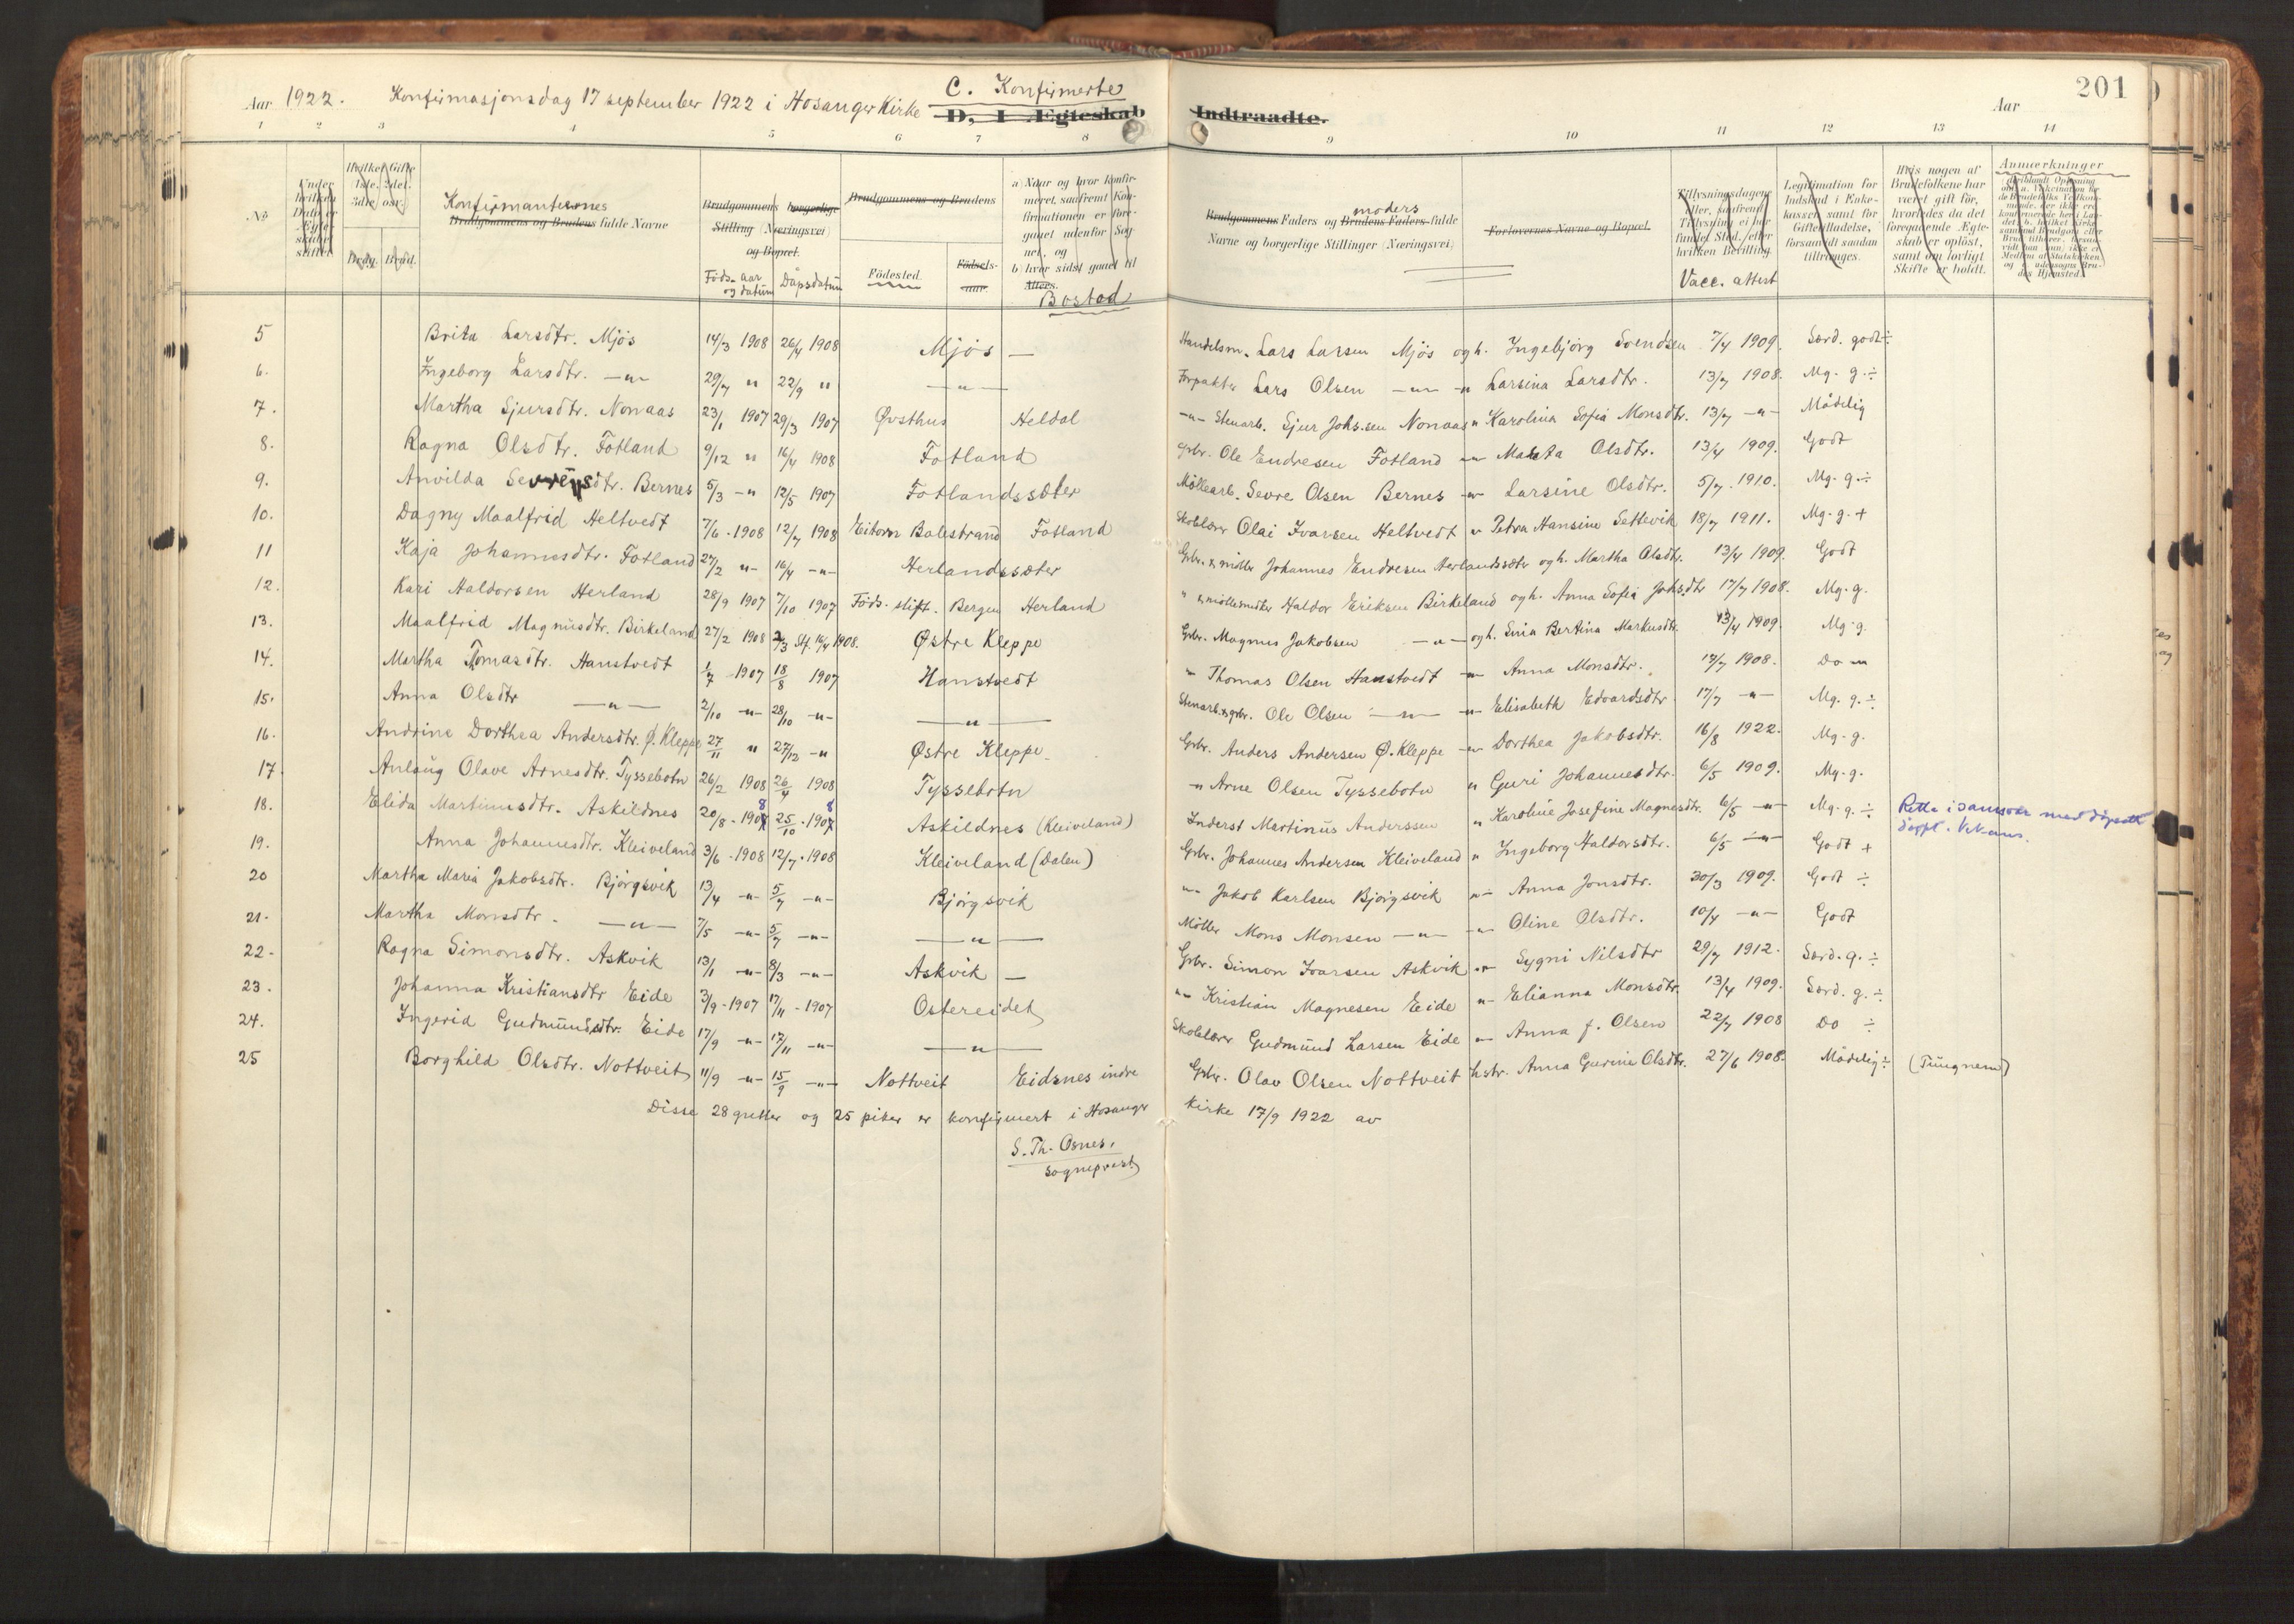 201
Aar 1922. Konfirmasjonsdag 17 september 1922 i Hosanger Kirke C. Konfirmerte
D. I Ægteskab Indtraadte. Aar
1 2 3 4 5 6 7 8 9 10 11 12 13 14
No
Under hvilken Dato er Ægteskabet stiftet
Hvilket Gifte (1ste, 2det, 3die, osv.)
Brdg. Brud.
Konfirmanternes
Brudgommens og Brudens fulde Navne
Brudgommens borgerlige Stilling (Næringsvei) og Bopæl.
Föds- aar og datum Dåpsdatum
Brudgommens og Brudens
Födested. Födsels- aar.
a) Naar og hvor Konfirmeret, saafremt Konfirmationen er foregaaet udenfor Sognet, og
b) hvor sidst gaaet til Alters.
Bostad
moders
Brudgommens Faders og Brudens Faders fulde Navne og borgerlige Stillinger (Næringsvei)
Forlovernes Navne og Bopæl.
Tillysningsdagene eller, saafremt Tillysning ei har fundet Sted, efter hvilken Bevilling.
Vacc. attest
Legitimation for Indskud i Enkekassen samt for Giftetilladelse, forsaavidt saadan tiltrænges.
Hvis nogen af Brudefolkene har været gift før, hvorledes da det foregaaende Ægteskab er opløst, samt om lovligt Skifte er holdt.
Anmærkninger
5 Brita Larsdtr. Mjös 14/3 1908 26/4 1908 Mjös — Handelsm. Lars Larsen Mjös og h. Ingebjörg Svendsen 7/4 1909. Særd. godt ÷
6. Ingeborg Larsdtr. —"— 29/7 " 22/9 " —"— Forpakter Lars Olsen —"— " Larsina Larsdtr. 13/7 1908. Mg. g. ÷
7. Martha Sjursdtr. Nonaas 23/1 1907 29/3 1907 Øvsthus Heldal —"— Stenarb. Sjur Johs.sen Nonaas " Karolina Sofia Monsdtr. 13/7 —"— Mådelig
8. Ragna Olsdtr. Fotland 9/12 " 16/4 1908 Fotland Grbr. Ole Endresen Fotland —"— Marta Olsdtr. 13/4 1909. Godt
9. Anvilda Sevreisdtr. Bernes 5/3 —" 12/5 1907 Fotlandssæter Möllearb. Sevre Olsen Bernes —"— Larsine Olsdtr. 5/7. 1910. Mg. g. ÷
10. Dagny Maalfrid Heltvedt 7/6 - 1908 12/7 1908 Balestrand Fotland Skolelærer Olai Ivarsen Heltvedt " Petra Hansine Settevik 18/7 1911. Mg. g. +
11 Kaja Johannesdtr. Fotland 27/2 "- 16/4 —"— Herlandssæter Grbr. & möller Johannes Endresen Herlandssæter og h. Martha Olsdtr. 13/4 1909. Godt
12. Kari Haldorsen Herland 28/9 1907 7/10 1907 Föds. stift. Bergen Herland " & möllesmöker Haldor Eriksen Birkeland og h. Anna Sofia Johsdtr 17/7 1908. Mg. g.
13. Maalfrid Magnusdtr. Birkeland 27/2 1908 2/3 Stf. 16/4 1908. Østre Kleppe Grbr. Magnus Jakobsen —"— og h. Bertina Markusdtr. 13/4 1909. Mg. g.
14. Martha Tomasdtr. Hanstvedt 1/7 - 1907 18/8 1907 Hanstvedt " Thomas Olsen Hanstvedt —"— Anna Monsdtr. 17/7 1908. Do —"
15. Anna Olsdtr —"— 2/10 —"— 28/10 —"— —"— Stenarb. & grbr. Ole Olsen —"— " Elisabeth Edvardsdtr 17/7 —"— Mg. g. ÷
16. Andrine Dorthea Andersdtr. Ø. Kleppe 27/11 " 27/12 —" Østre Kleppe. Grbr. Anders Andersen Ø. Kleppe —"— Dorthea Jakobsdtr. 16/8 1922. Mg. g.
17. Anlaug Olave Arnesdtr. Tyssebotn 26/2 1908 26/4 1908 Tyssebotn —" Arne Olsen Tyssebotn " Guri Johannesdtr. 6/5 1909. Mg. g.
18. Elida Martinusdtr. Askildnes 20/8 - 1907 8 25/10 - 1907 8 Askildnes (Kleiveland) Inderst Martinus Anderssen " Karoline Josefine Magnesdtr. 6/5 —"— Mg. g. ÷ Retta i samsvar med
19. Anna Johannesdtr. Kleiveland 3/6 - 1908 12/7 - 1908 Kleiveland (Dalen) Grbr. Johannes Andersen Kleiveland " Ingeborg Haldorsdtr. 6/5 —"— Godt +
20 Martha Maria Jakobsdtr. Bjørgsvik 13/4 —"— 5/7 —"— Bjørgsvik "— Jakob Karlsen Bjørgsvik "— Anna Jonsdtr. 30/3 1909. Godt ÷
21. Martha Monsdtr. —"— 7/5 —"— 5/7 —"— —"— Möller Mons Monsen —"— —"— Oline Olsdtr. 10/4 —"— Godt
22. Ragna Simonsdtr. Askvik 13/1 —"— 8/3 —"— Askvik — Grbr. Simon Ivarsen Askvik —"— Sygni Nilsdtr 29/7 1912. Særd. g. ÷
23. Johanna Kristiansdtr Eide 3/9 - 1907 17/11 - 1907 Ostereidet "— Kristian Magnesen Eide "— Elianna Monsdtr. 13/4 1909. Særd. g. ÷
24. Ingerid Gudmundsdtr. Eide 17/9 —"— 17/11 —"— —"— Skolelærer Gudmund Larsen Eide "— Anna f. Olsen 22/7 1908 Do ÷
25 Borghild Olsdtr. Nottveit 11/9 —"— 15/9 —"— Nottveit Eidsnes indre Grbr. Olav Olsen Nottveit hstr. Anna Gurine Olsdtr. 27/6 1908. Mådelig ÷ (Tungnem)
Disse 28 gutter og 25 piker er konfirmert i Hosanger Kirke 17/9 1922 av
S. Th. Osnes.
Sogneprest